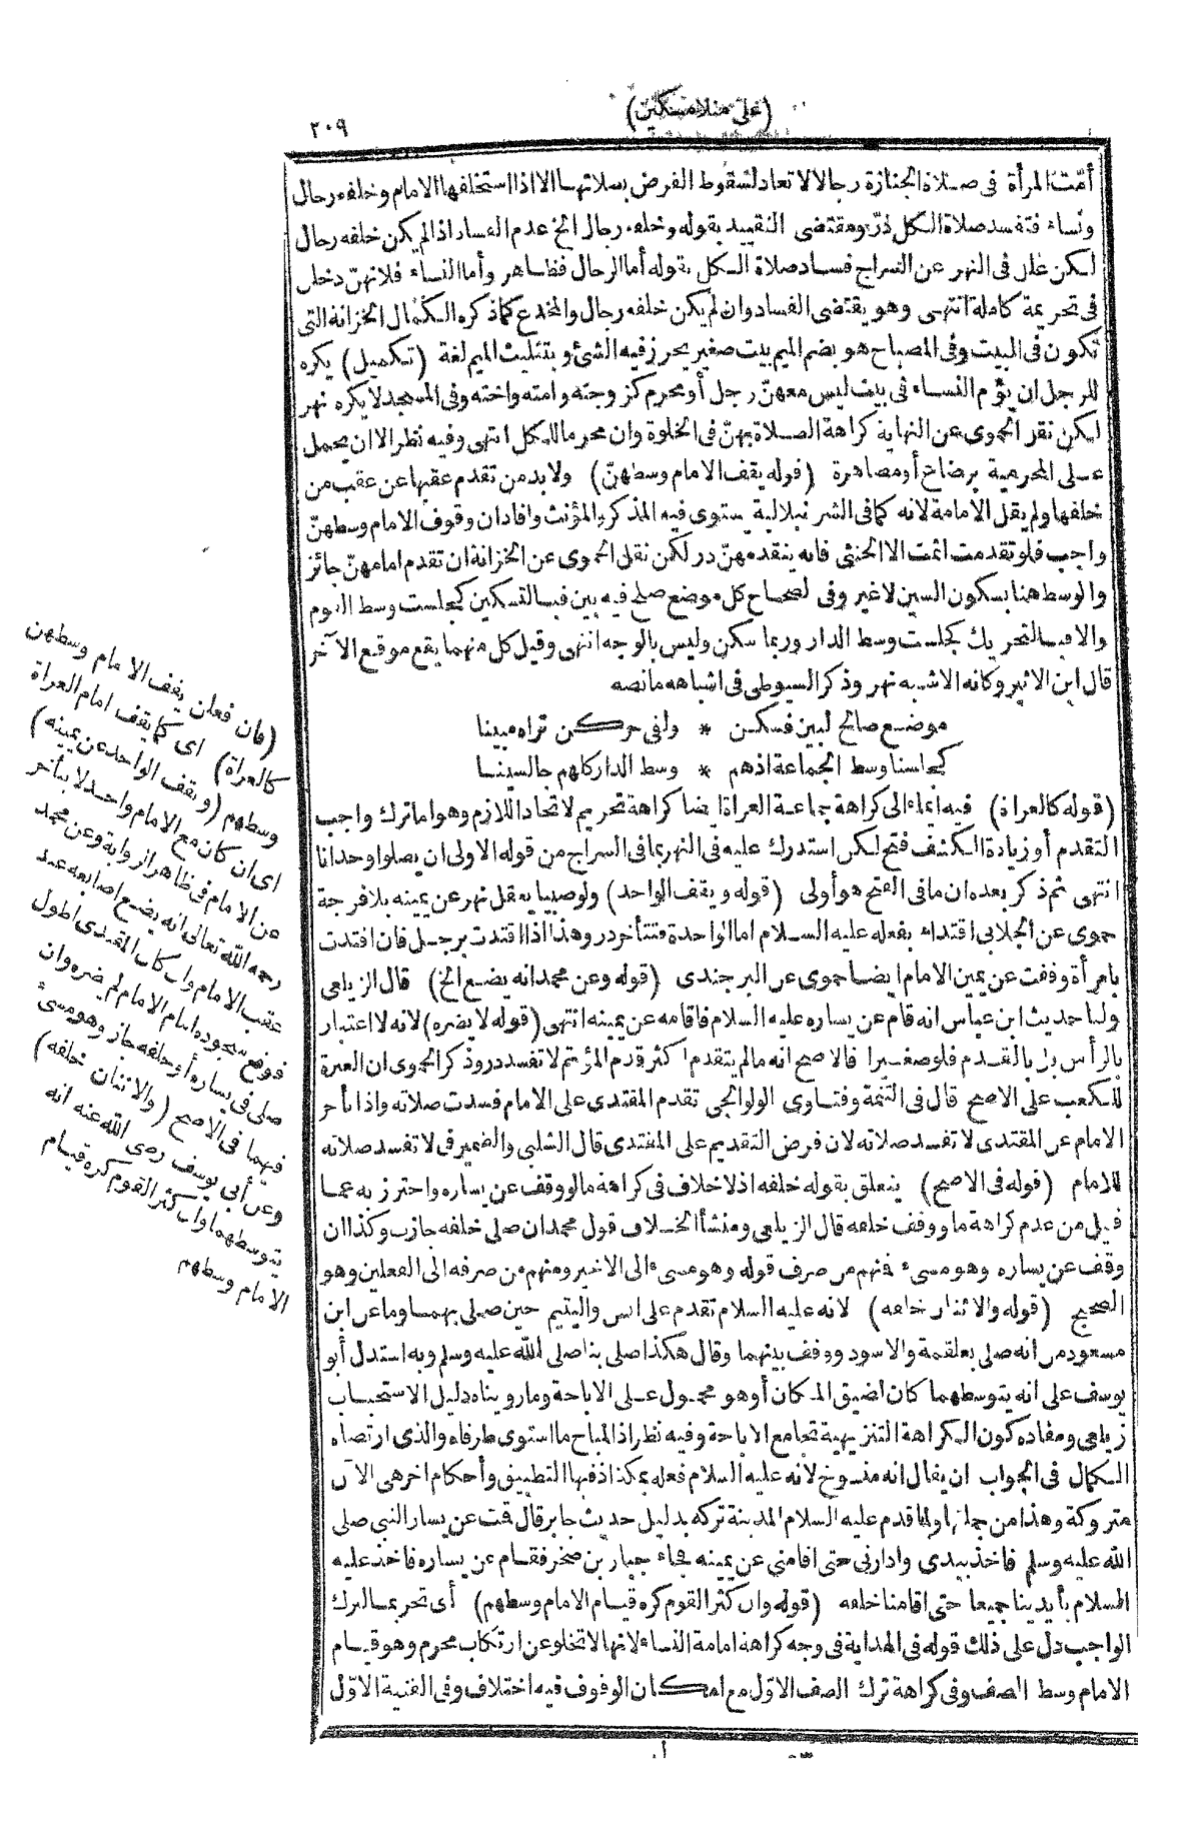 (على منلا مسكين)
٢٠٩
أمّت المرأة فى صلاة الجنازة رجالا لا تعاد لسقوط الفرض بصلاتها الا اذا استخلفها الامام وخلفه رجال
ونساء فتفسد صلاة الكل در ومقتضى التقييد بقوله وخلفه رجال الخ عدم الفساد اذا لم يكن خلفه رجال
لكن علل فى النهر عن السراج فساد صلاة الكل بقوله أما الرجال فظاهر وأما النساء فلانهنّ دخلن
فى تحريمة كاملة انتهى وهو يقتضى الفساد وان لم يكن خلفه رجال والمخدع كما ذكره الكمال الخزانة التى
تكون فى البيت وفى المصباح هو بضم الميم بيت صغير يحرز فيه الشئ وبتثليث الميم لغة (تكميل) يكره
للرجل ان يؤم النساء فى بيت ليس معهنّ رجل أو محرم كزوجته وامته واخته وفى المسجد لا يكره نهر
لكن نقل الحموى عن النهاية كراهة الصلاة بهنّ فى الخلوة وان محرما للكل انتهى وفيه نظر الا ان يحمل
على المحرمية برضاع أو مصاهرة (قوله يقف الامام وسطهنّ) ولا بد من تقدم عقبها عن عقب من
خلفها ولم يقل الامامة لانه كما فى الشرنبلالية يستوى فيه المذكر والمؤنث وافاد ان وقوف الامام وسطهنّ
واجب فلو تقدمت اثمت الا الخنثى فانه يتقدمهنّ در لكن نقل الحموى عن الخزانة ان تقدم امامهنّ جائز
والوسط هنا بسكون السين لا غير وفى الصحاح كل موضع صلح فيه بين فبالتسكين كجلست وسط القوم
والا فبالتحريك كجلست وسط الدار وربما سكن وليس بالوجه انتهى وقيل كل منهما يقع موقع الآخر
قال ابن الاثير وكانه الاشبه نهر وذكر السيوطى فى اشباهه مانصه
موضع صالح لبين فسكن * ولفى حركن تراه مبينا
كجلسنا وسط الجماعة اذهم * وسط الدار كلهم جالسينا
(قوله كالعراة) فيه ايماء الى كراهة جماعة العراة ايضا كراهة تحريم لاتحاد اللازم وهو اما ترك واجب
التقدم أو زيادة الكشف فتح لكن استدرك عليه فى النهر بما فى السراج من قوله الاولى ان يصلوا وحدانا
انتهى ثم ذكر بعده ان ما فى الفتح هو أولى (قوله ويقف الواحد) ولو صبيا يعقل نهر عن يمينه بلا فرجة
حموى عن الجلابى اقتداء بفعله عليه السلام اما الواحدة فتتأخر در وهذا اذا اقتدت برجل فان اقتدت
بامرأة وقفت عن يمين الامام ايضا حموى عن البرجندى (قوله وعن محمد انه يضع الخ) قال الزيلعى
ولنا حديث ابن عباس انه قام عن يساره عليه السلام فاقامه عن يمينه انتهى (قوله لا يضره) لانه لا اعتبار
بالرأس بل بالقدم فلو صغيرا فالاصح انه مالم يتقدم اكثر قدم المؤتم لا تفسد در وذكر الحموى ان العبرة
للكعب على الاصح قال فى التتمة وفتاوى الولوالجى تقدم المقتدى على الامام فسدت صلاته واذا تأخر
الامام عن المقتدى لا تفسد صلاته لان فرض التقديم على المقتدى قال الشلبى والضمير فى لا تفسد صلاته
للامام (قوله فى الاصح) يتعلق بقوله خلفه اذ لا خلاف فى كراهة مالو وقف عن يساره واحترز به عما
قيل من عدم كراهة ما ووقف خلفه قال الزيلعى ومنشأ الخلاف قول محمد ان صلى خلفه جازت وكذا ان
وقف عن يساره وهو مسىء فمنهم من صرف قوله وهو مسىء الى الاخير ومنهم من صرفه الى الفعلين وهو
الصحيح (قوله والاثنان خلفه) لانه عليه السلام تقدم على انس واليتيم حين صلى بهما وما عن ابن
مسعود من أنه صلى بعلقمة والاسود ووقف بينهما وقال هكذا صلى بنا صلى الله عليه وسلم وبه استدل أبو
يوسف على انه يتوسطهما كان لضيق المكان أو هو محمول على الاباحة وما رويناه دليل الاستحباب
زيلعى ومفاده كون الكراهة التنزيهية تجامع الاباحة وفيه نظر اذ المباح ما استوى طرفاه والذى ارتضاه
الكمال فى الجواب ان يقال انه منسوخ لانه عليه السلام فعله بمكة اذ فيها التطبيق وأحكام اخر هى الآن
متروكة وهذا من جملتها ولما قدم عليه السلام المدينة تركه بدليل حديث جابر قال قمت عن يسار النبى صلى
الله عليه وسلم فاخذ بيدى وادارنى حتى اقامنى عن يمينه فجاء جبار بن صخر فقام عن يساره فاخذ عليه
السلام بأيدينا جميعا حتى اقامنا خلفه (قوله وان كثر القوم كره قيام الامام وسطهم) أى تحريما لترك
الواجب دل على ذلك قوله فى الهداية فى وجه كراهة امامة النساء لانها لا تخلو عن ارتكاب محرم وهو قيام
الامام وسط الصف وفى كراهة ترك الصف الاوّل مع امكان الوقوف فيه اختلاف وفى القنية الاوّل
(فان فعلن يقف الامام وسطهن
كالعراة) اى كما يقف امام العراة
وسطهم (ويقف الواحد عن يمينه)
اى ان كان مع الامام واحد لا يتأخر
عن الامام فى ظاهر الرواية وعن محمد
رحمه الله تعالى انه يضع اصابعه عند
عقب الامام وان كان المقتدى اطول
فوقع سجوده امام الامام لم يضره وان
صلى فى يساره أو خلفه جاز وهو مسىء
فيهما فى الاصح (والاثنان خلفه)
وعن أبى يوسف رضى الله عنه انه
يتوسطهما وان كثر القوم كره قيام
الامام وسطهم